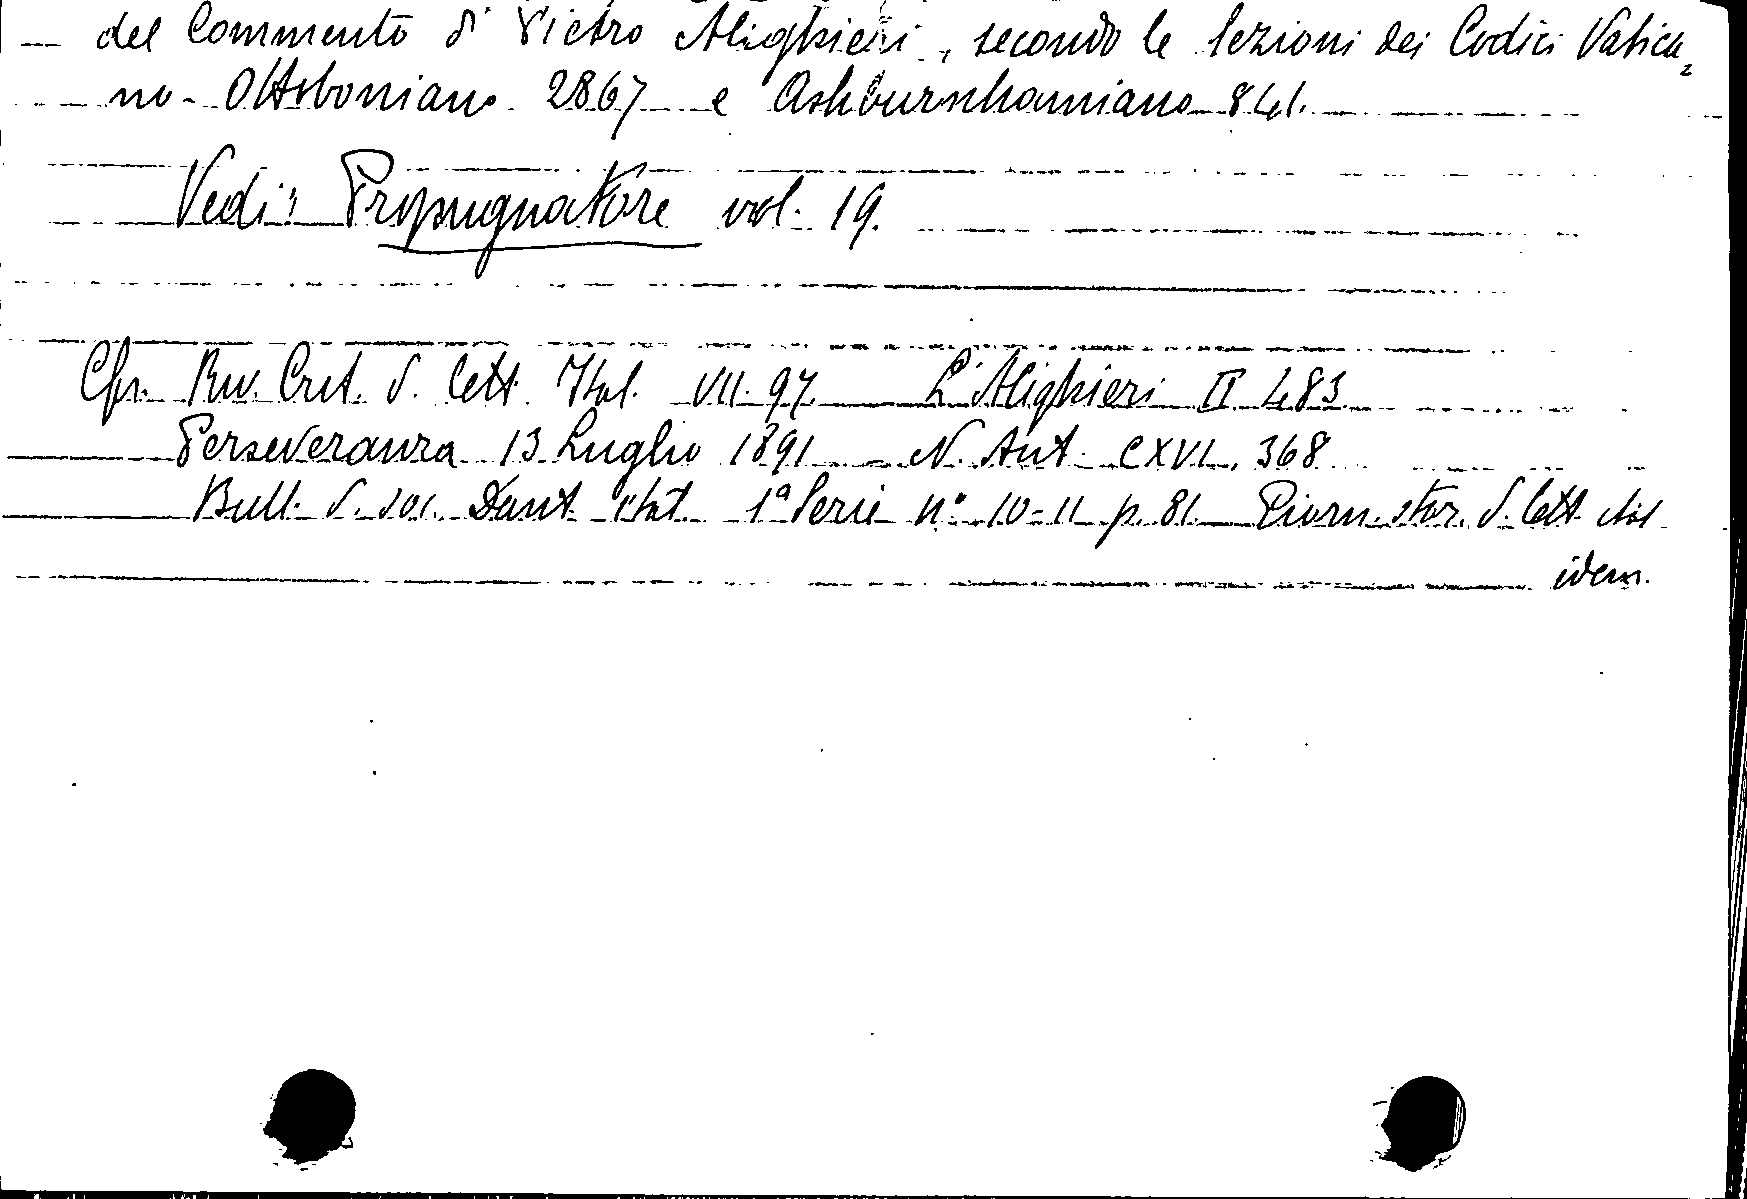 del Commento di Pietro Alighieri, secondo le lezioni dei Codici Vatica=
no-Ottoboniano 2867 e Ashburnhamiano 841.
Vedi: Propugnatore vol. 19.
Cfr. Riv. Crit. d. Lett. Ital. VII. 97 L'Alighieri II 483
Perseveranza 13 Luglio 1891 N. Ant. CXVI. 368
Bull. d. soc. Dant. ital. 1ª Serie nº 10-11 p. 81. Giorn. stor. d. lett. ital
idem.